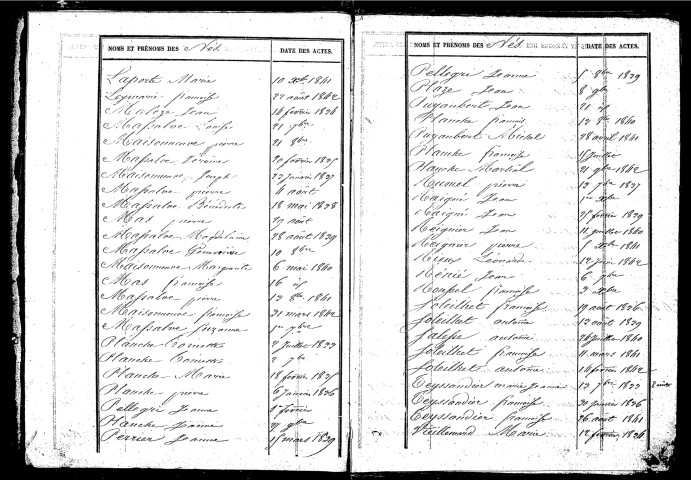 NOMS ET PRÉNOMS DES Nés DATE DES ACTES.
Laporte Marie 10 Xbre 1841
Leymarie françoise 22 août 1842
Malaze Jean 14 février 1834
Massalve Louise 21 9bre
Maisonneuve pierre 21 8bre
Massalve Jérôme 20 février 1835
Maisonneuve Joseph 22 Janvier 1837
Massalve pierre 4 août
Massalve Bénédicte 18 mai 1838
Mas pierre 29 août
Massalve Magdeleine 28 août 1839
Massalve Geneviève 10 8bre
Maisonneuve Marguerite 6 mai 1840
Mas françoise 16 id
Massalve pierre 13 8bre 1841
Maisonneuve françoise 31 mars 1842
Massalve Suzanne 1er 7bre
Planche 7 Juillet 1833
Planche 2 7bre
Planche Marie 18 février 1835
Planche pierre 6 Janvier 1836
Pellegri Jeanne 1er février
Planche Jeanne 27 9bre
Perrier Jeanne 15 mars 1839
NOMS ET PRÉNOMS DES Nés DATE DES ACTES.
Pellegri Jeanne 5 8bre 1839
Plaze Jean 8 9bre
Puyaubert Jean 21 id
Planche françois 12 8bre 1840
Puyaubert Michel 28 avril 1841
Planche françoise 15 Juillet
Planche Martial 21 9bre 1842
Rumel pierre 13 7bre 1837
Raigné Jean 1er Xbre
Raigné Jean 25 février 1839
Reignier Jean 11 Juillet 1840
Reignier pierre 5 Xbre 1841
Rieux Léonarde 12 Juin 1842
Rénié Jean 6 7bre
Roupel françoise 2 Xbre
Soleilhet françoise 19 août 1836
Soleilhet antoine 13 août 1839
Salesse antoine 26 Juillet 1840
Soleilhet françoise 11 mars 1841
Soleilhet antoine 14 février 1842
Teyssandier marie Jeanne 13 7bre 1833
Teyssandier françoise 20 Janvier 1836
Teyssandier françoise 26 août 1841
Vieillemard Marie 12 février 1834